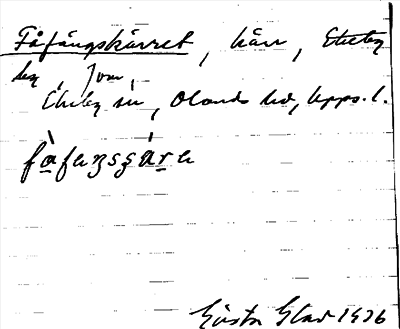 Fåfängskärret, kärr, Ekeby
by, Jvm,
Ekeby sn, Olands hd, Upps. l.
fàfeŋsçä́ra
Gösta Stad 1936